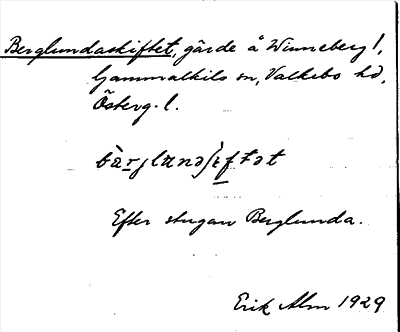 Berglundaskiftet, gärde å Winneberg 1,
Gammalkils sn, Valkebo hd,
Österg. l.
Efter stugan Berglunda.
Erik Alm 1929